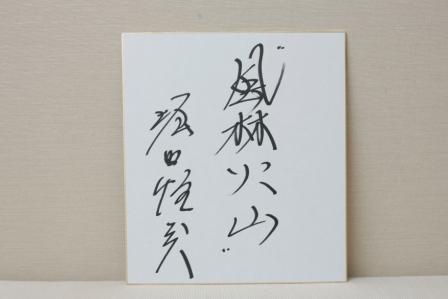 〝風林火山〟
堀口恒男